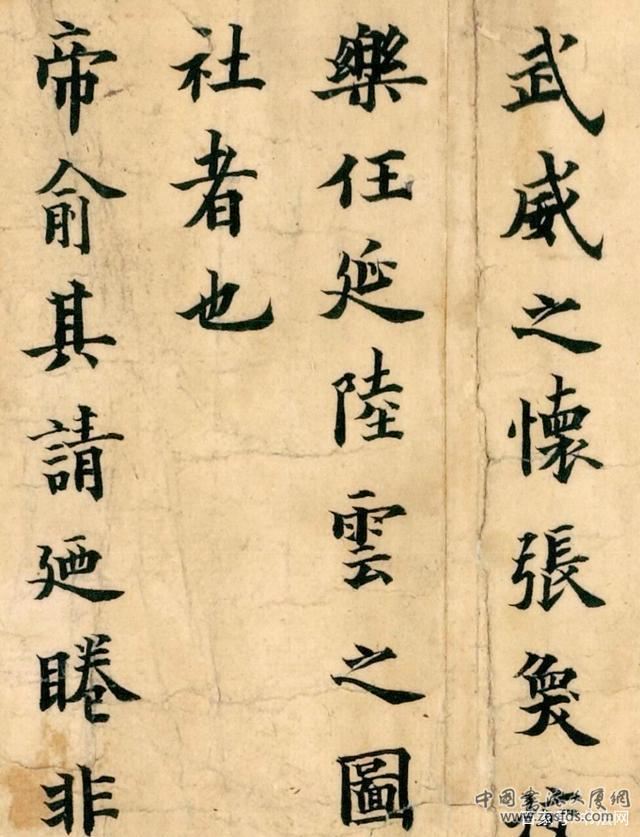 武威之懷張奐
樂任延陸雲之圖
社者也
帝俞其請廼睠非
中國書法大廈網
www.zgsfds.com